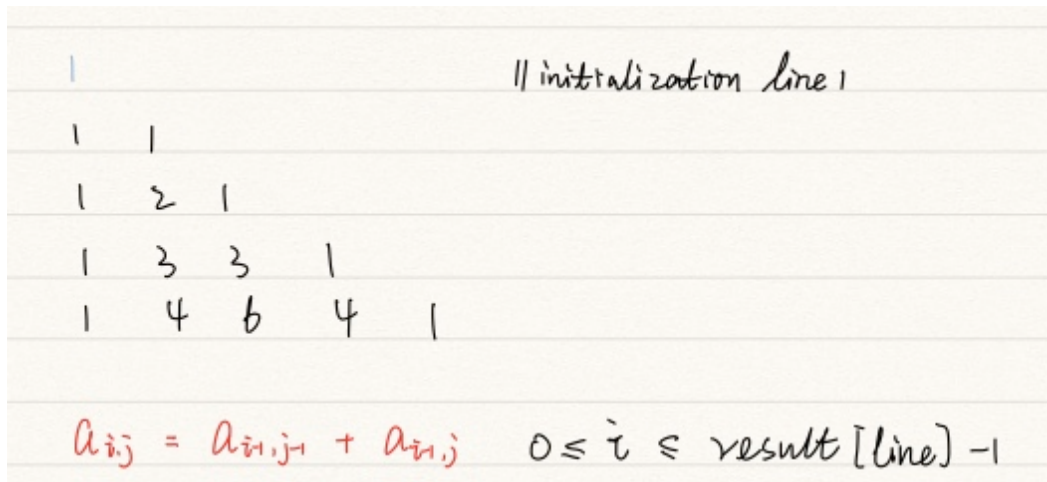 1 // initialization line 1
1 1
1 2 1
1 3 3 1
1 4 6 4 1
a_{i,j} = a_{i-1,j-1} + a_{i-1,j} 0 ≤ i ≤ result[line] -1